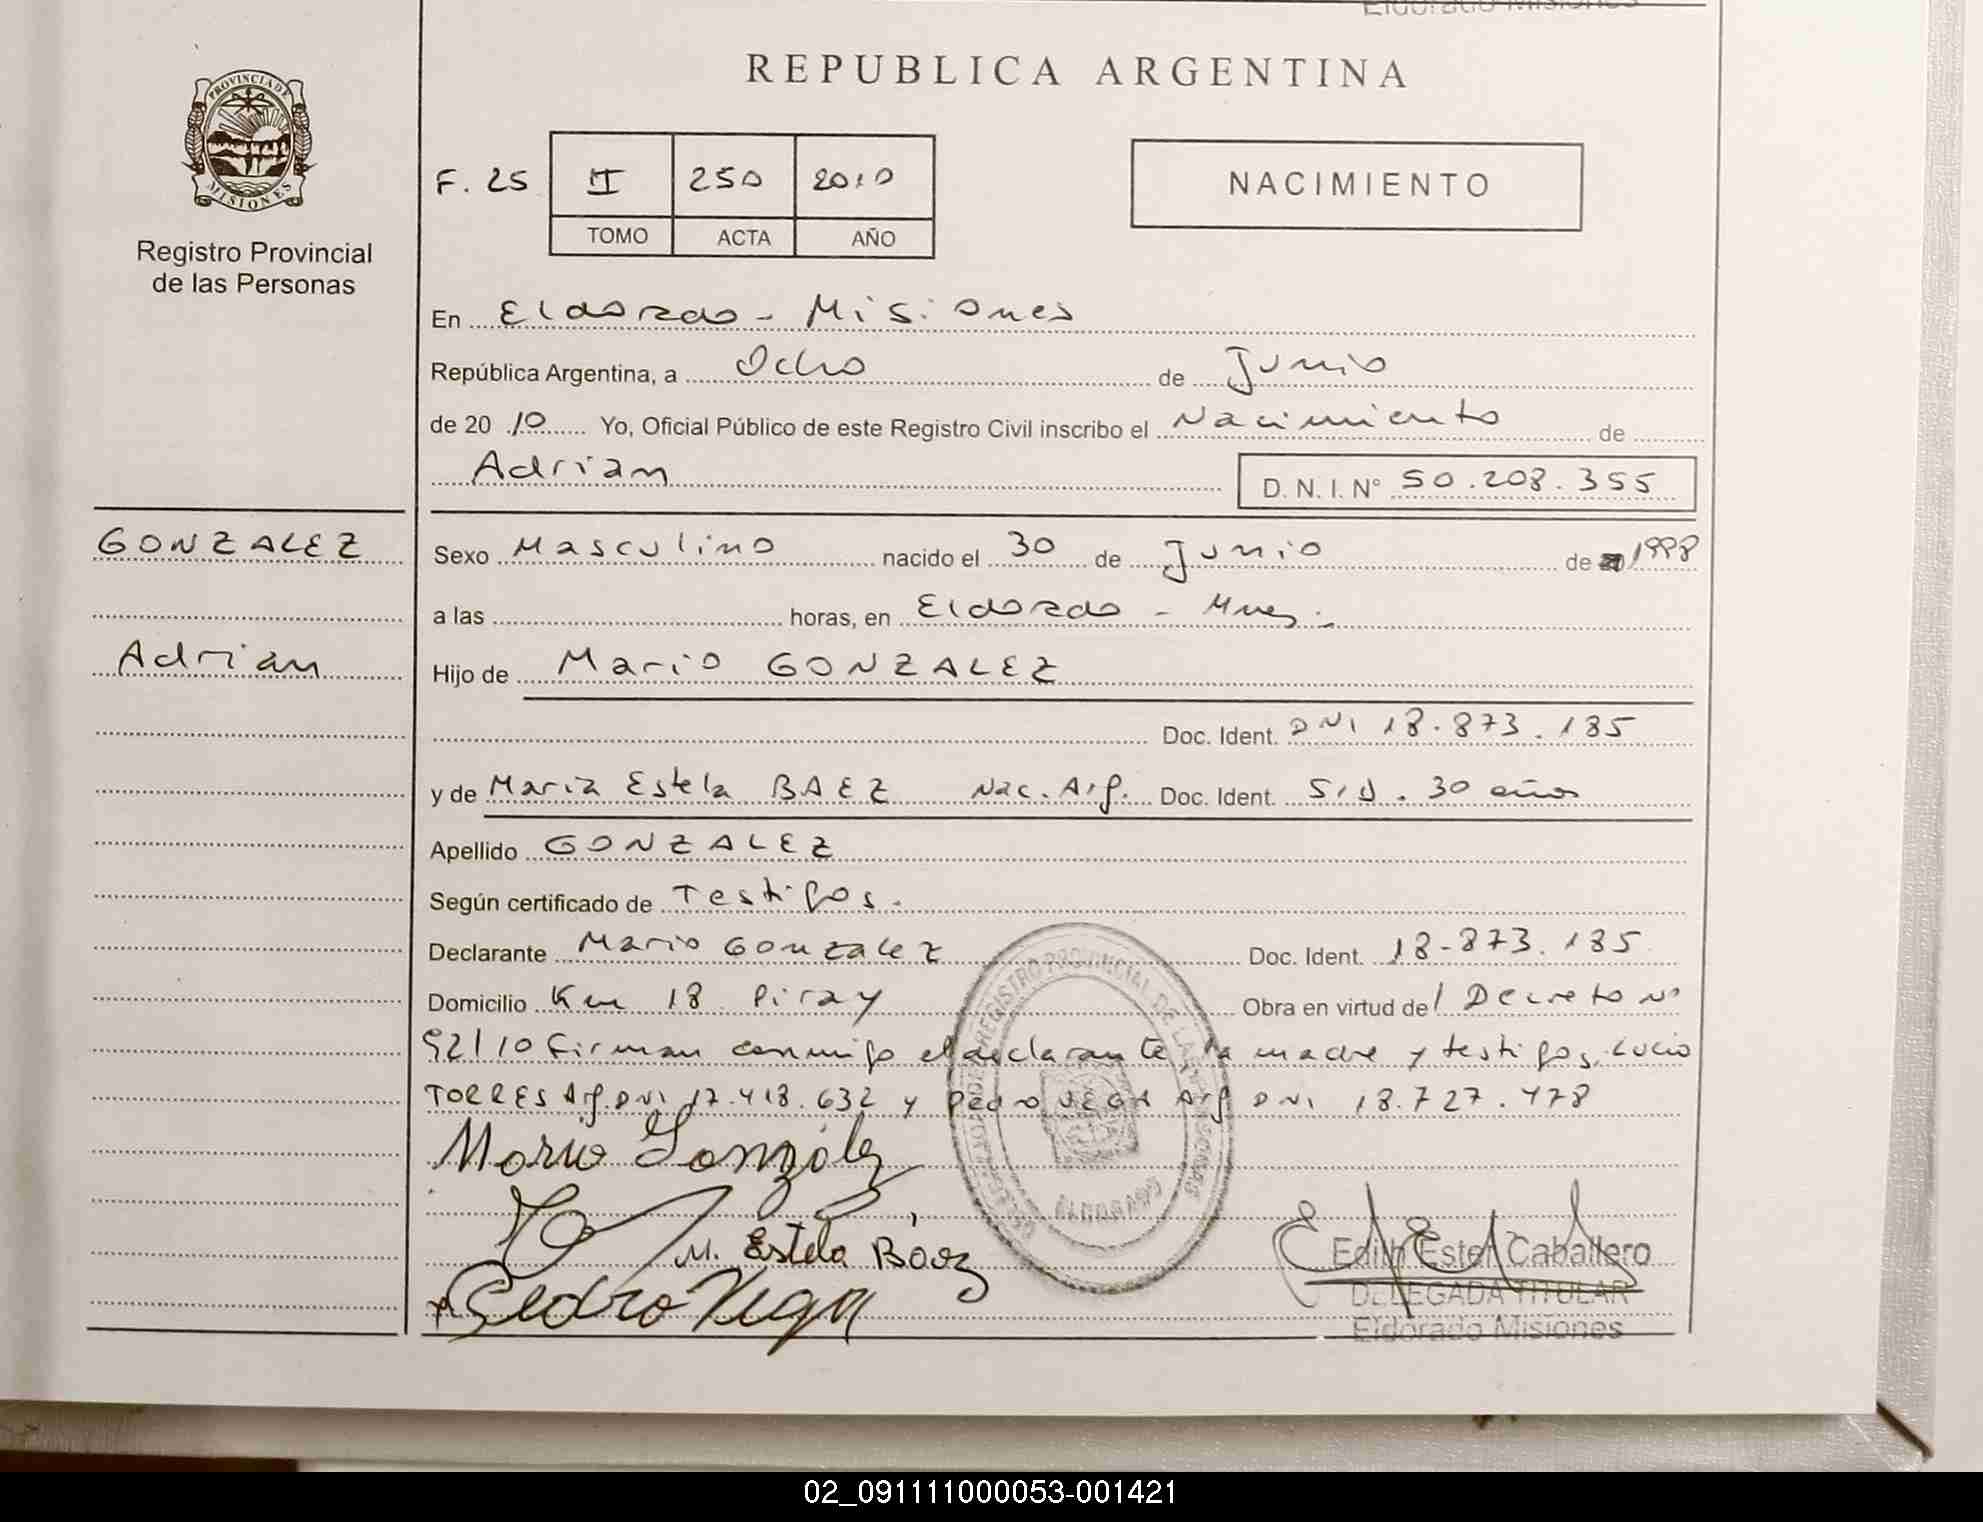 Eldorado Misiones
REPUBLICA ARGENTINA
PROVINCIA DE
MISIONES
Registro Provincial
de las Personas
F. 25 II 250 2010
TOMO ACTA AÑO
NACIMIENTO
En Eldorado - Misiones
República Argentina, a Ocho de Junio
de 20 10 Yo, Oficial Público de este Registro Civil inscribo el Nacimiento de
Adrian D. N. I. N° 50.208.355
GONZALEZ
Adrian
Sexo Masculino nacido el 30 de Junio de 1998
a las horas, en Eldorado - Mnes.
Hijo de Mario GONZALEZ
Doc. Ident. DNI 18.873.185
y de Maria Estela BAEZ Nac. Arg. Doc. Ident. S/D. 30 años
Apellido GONZALEZ
Según certificado de Testigos.
Declarante Mario GonzaleZ Doc. Ident. 18-873.185
Domicilio Km 18 Piray Obra en virtud del Decreto N°
92/10 Firman conmigo el declarante la madre y testigos, Lucio
TORRES Arg. DNI 17.418.632 y Pedro VEGA Arg DNI 18.727.478
Mario González
M. Estela Báez
Pedro Vega
REGISTRO PROVINCIAL DE LAS PERSONAS
ELDORADO
Edith Ester Caballero
DELEGADA TITULAR
Eldorado Misiones
02_091111000053-001421